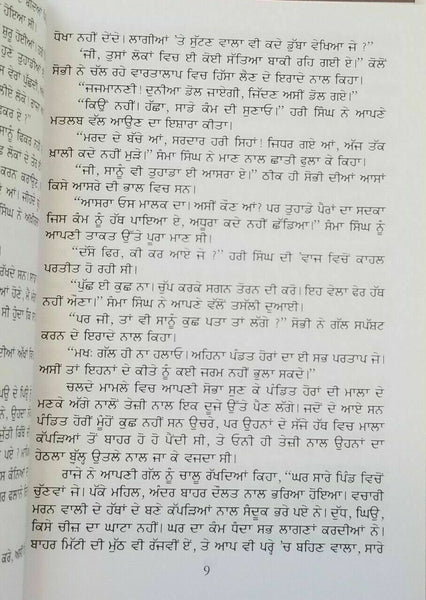 ਧੋਖਾ ਨਹੀਂ ਦੇਂਦੇ। ਲਾਗੀਆਂ 'ਤੇ ਸੁੱਟਣ ਵਾਲਾ ਵੀ ਕਦੇ ਡੁੱਬਾ ਵੇਖਿਆ ਜੇ ?"
"ਜੀ, ਤੁਸਾਂ ਲੋਕਾਂ ਵਿਚ ਈ ਕੋਈ ਸੱਤਿਆ ਬਾਕੀ ਰਹਿ ਗਈ ਏ।" ਕੋਲੋਂ
ਸੋਭੀ ਨੇ ਚੱਲ ਰਹੇ ਵਾਰਤਾਲਾਪ ਵਿਚ ਹਿੱਸਾ ਲੈਣ ਦੇ ਇਰਾਦੇ ਨਾਲ ਕਿਹਾ।
"ਜਜਮਾਨਣੀ! ਦੁਨੀਆ ਡੋਲ ਜਾਏਗੀ, ਜਿੱਦਣ ਅਸੀਂ ਡੋਲ ਗਏ।"
"ਕਿਉਂ ਨਹੀਂ। ਹੱਛਾ, ਸਾਡੇ ਕੰਮ ਦੀ ਸੁਣਾਓ।" ਹਰੀ ਸਿੰਘ ਨੇ ਆਪਣੇ
ਮਤਲਬ ਵੱਲ ਆਉਣ ਦਾ ਇਸ਼ਾਰਾ ਕੀਤਾ।
"ਮਰਦ ਦੇ ਬੱਚੇ ਆਂ, ਸਰਦਾਰ ਹਰੀ ਸਿਹਾਂ! ਜਿਧਰ ਗਏ ਆਂ, ਅੱਜ ਤੱਕ
ਖ਼ਾਲੀ ਕਦੇ ਨਹੀਂ ਮੁੜੇ।" ਸੰਮਾ ਸਿੰਘ ਨੇ ਮਾਣ ਨਾਲ ਛਾਤੀ ਫੁਲਾ ਕੇ ਕਿਹਾ।
"ਜੀ, ਸਾਨੂੰ ਵੀ ਤੁਹਾਡਾ ਈ ਆਸਰਾ ਏ।" ਠੀਕ ਹੀ ਸੋਭੀ ਦੀਆਂ ਆਸਾਂ
ਕਿਸੇ ਆਸਰੇ ਦੀ ਭਾਲ ਵਿਚ ਸਨ।
"ਆਸਰਾ ਓਸ ਮਾਲਕ ਦਾ। ਅਸੀਂ ਕੌਣ ਆਂ? ਪਰ ਤੁਹਾਡੇ ਪੈਰਾਂ ਦਾ ਸਦਕਾ
ਜਿਸ ਕੰਮ ਨੂੰ ਹੱਥ ਪਾਇਆ ਏ, ਅਧੂਰਾ ਕਦੇ ਨਹੀਂ ਛੱਡਿਆ।" ਸੰਮਾ ਸਿੰਘ ਨੂੰ
ਆਪਣੀ ਤਾਕਤ ਉੱਤੇ ਪੂਰਾ ਮਾਣ ਸੀ।
"ਦੱਸੋ ਫਿਰ, ਕੀ ਕਰ ਆਏ ਜੇ ?" ਹਰੀ ਸਿੰਘ ਦੀ 'ਵਾਜ ਵਿਚੋਂ ਕਾਹਲ
ਪਰਤੀਤ ਹੋ ਰਹੀ ਸੀ।
"ਪੁੱਛ ਈ ਕੁਛ ਨਾ। ਚੁੱਪ ਕਰਕੇ ਸਗਨ ਤੋਰਨ ਦੀ ਕਰੋ। ਇਹ ਵੇਲਾ ਫੇਰ ਹੱਥ
ਨਹੀਂ ਔਣਾ।" ਸੰਮਾ ਸਿੰਘ ਨੇ ਆਪਣੇ ਵੱਲੋਂ ਤਸੱਲੀ ਦੁਆਈ।
"ਪਰ ਜੀ, ਤਾਂ ਵੀ ਸਾਨੂੰ ਕੁਛ ਪਤਾ ਤਾਂ ਲੱਗੇ ?" ਸੋਭੀ ਨੇ ਗੱਲ ਸਪੱਸ਼ਟ
ਕਰਨ ਦੇ ਇਰਾਦੇ ਨਾਲ ਕਿਹਾ।
"ਮਖ਼ਾਂ ਗੱਲ ਹੀ ਨਾ ਹਲਾਓ। ਅਹਿਨਾ ਪੰਡਤ ਹੋਰਾਂ ਦਾ ਈ ਸਭ ਪਰਤਾਪ ਜੇ।
ਅਸੀਂ ਤਾਂ ਇਹਨਾਂ ਦੇ ਕੀਤੇ ਨੂੰ ਕਈ ਜਰਮ ਨਹੀਂ ਭੁਲਾ ਸਕਦੇ।"
ਚਲਦੇ ਮਾਮਲੇ ਵਿਚ ਆਪਣੀ ਸੋਭਾ ਸੁਣ ਕੇ ਪੰਡਿਤ ਹੋਰਾਂ ਦੀ ਮਾਲਾ ਦੇ
ਮਣਕੇ ਅੱਗੇ ਨਾਲੋਂ ਤੇਜ਼ੀ ਨਾਲ ਇਕ ਦੂਜੇ ਉੱਤੇ ਪੈਣ ਲੱਗੇ। ਜਦੋਂ ਦੇ ਆਏ ਸਨ
ਪੰਡਿਤ ਹੋਰੀਂ ਮੂੰਹੋਂ ਕੁਛ ਨਹੀਂ ਸਨ ਉਚਰੇ, ਪਰ ਉਹਨਾਂ ਦੇ ਸੱਜੇ ਹੱਥ ਵਿਚ ਮਾਲਾ
ਕੱਪੜਿਆਂ ਤੋਂ ਬਾਹਰ ਹੋ ਹੋ ਪੈਂਦੀ ਸੀ, ਤੇ ਓਨੀ ਹੀ ਤੇਜ਼ੀ ਨਾਲ ਉਹਨਾਂ ਦਾ
ਹੇਠਲਾ ਬੁੱਲ੍ਹ ਉਤਲੇ ਨਾਲ ਜਾ ਕੇ ਵਜਦਾ ਸੀ।
ਰਾਜੇ ਨੇ ਆਪਣੀ ਗੱਲ ਨੂੰ ਚਾਲੂ ਰੱਖਦਿਆਂ ਕਿਹਾ, "ਘਰ ਸਾਰੇ ਪਿੰਡ ਵਿਚੋਂ
ਚੁੱਣਵਾਂ ਜੇ। ਪੱਕੇ ਮਹਿਲ, ਅੰਦਰ ਬਾਹਰ ਦੌਲਤ ਨਾਲ ਭਰਿਆ ਹੋਇਆ। ਵਚਾਰੀ
ਮਰਨ ਵਾਲੀ ਦੇ ਹੱਥਾਂ ਦੇ ਬਣੇ ਕੱਪੜਿਆਂ ਨਾਲ ਸੰਦੂਕ ਭਰੇ ਪਏ ਨੇ। ਦੁੱਧ, ਘਿਉ,
ਕਿਸੇ ਚੀਜ਼ ਦਾ ਘਾਟਾ ਨਹੀਂ। ਘਰ ਦਾ ਕੰਮ ਧੰਦਾ ਸਭ ਲਾਗਣਾਂ ਕਰਦੀਆਂ ਨੇ।
ਬਾਹਰ ਮਿੱਟੀ ਦੀ ਮੁੱਠ ਵੀ ਰੱਜਵੀਂ ਏਂ, ਤੇ ਆਪ ਵੀ ਪਰ੍ਹੇ 'ਚ ਬਹਿਣ ਵਾਲਾ, ਸਾਰੇ
9